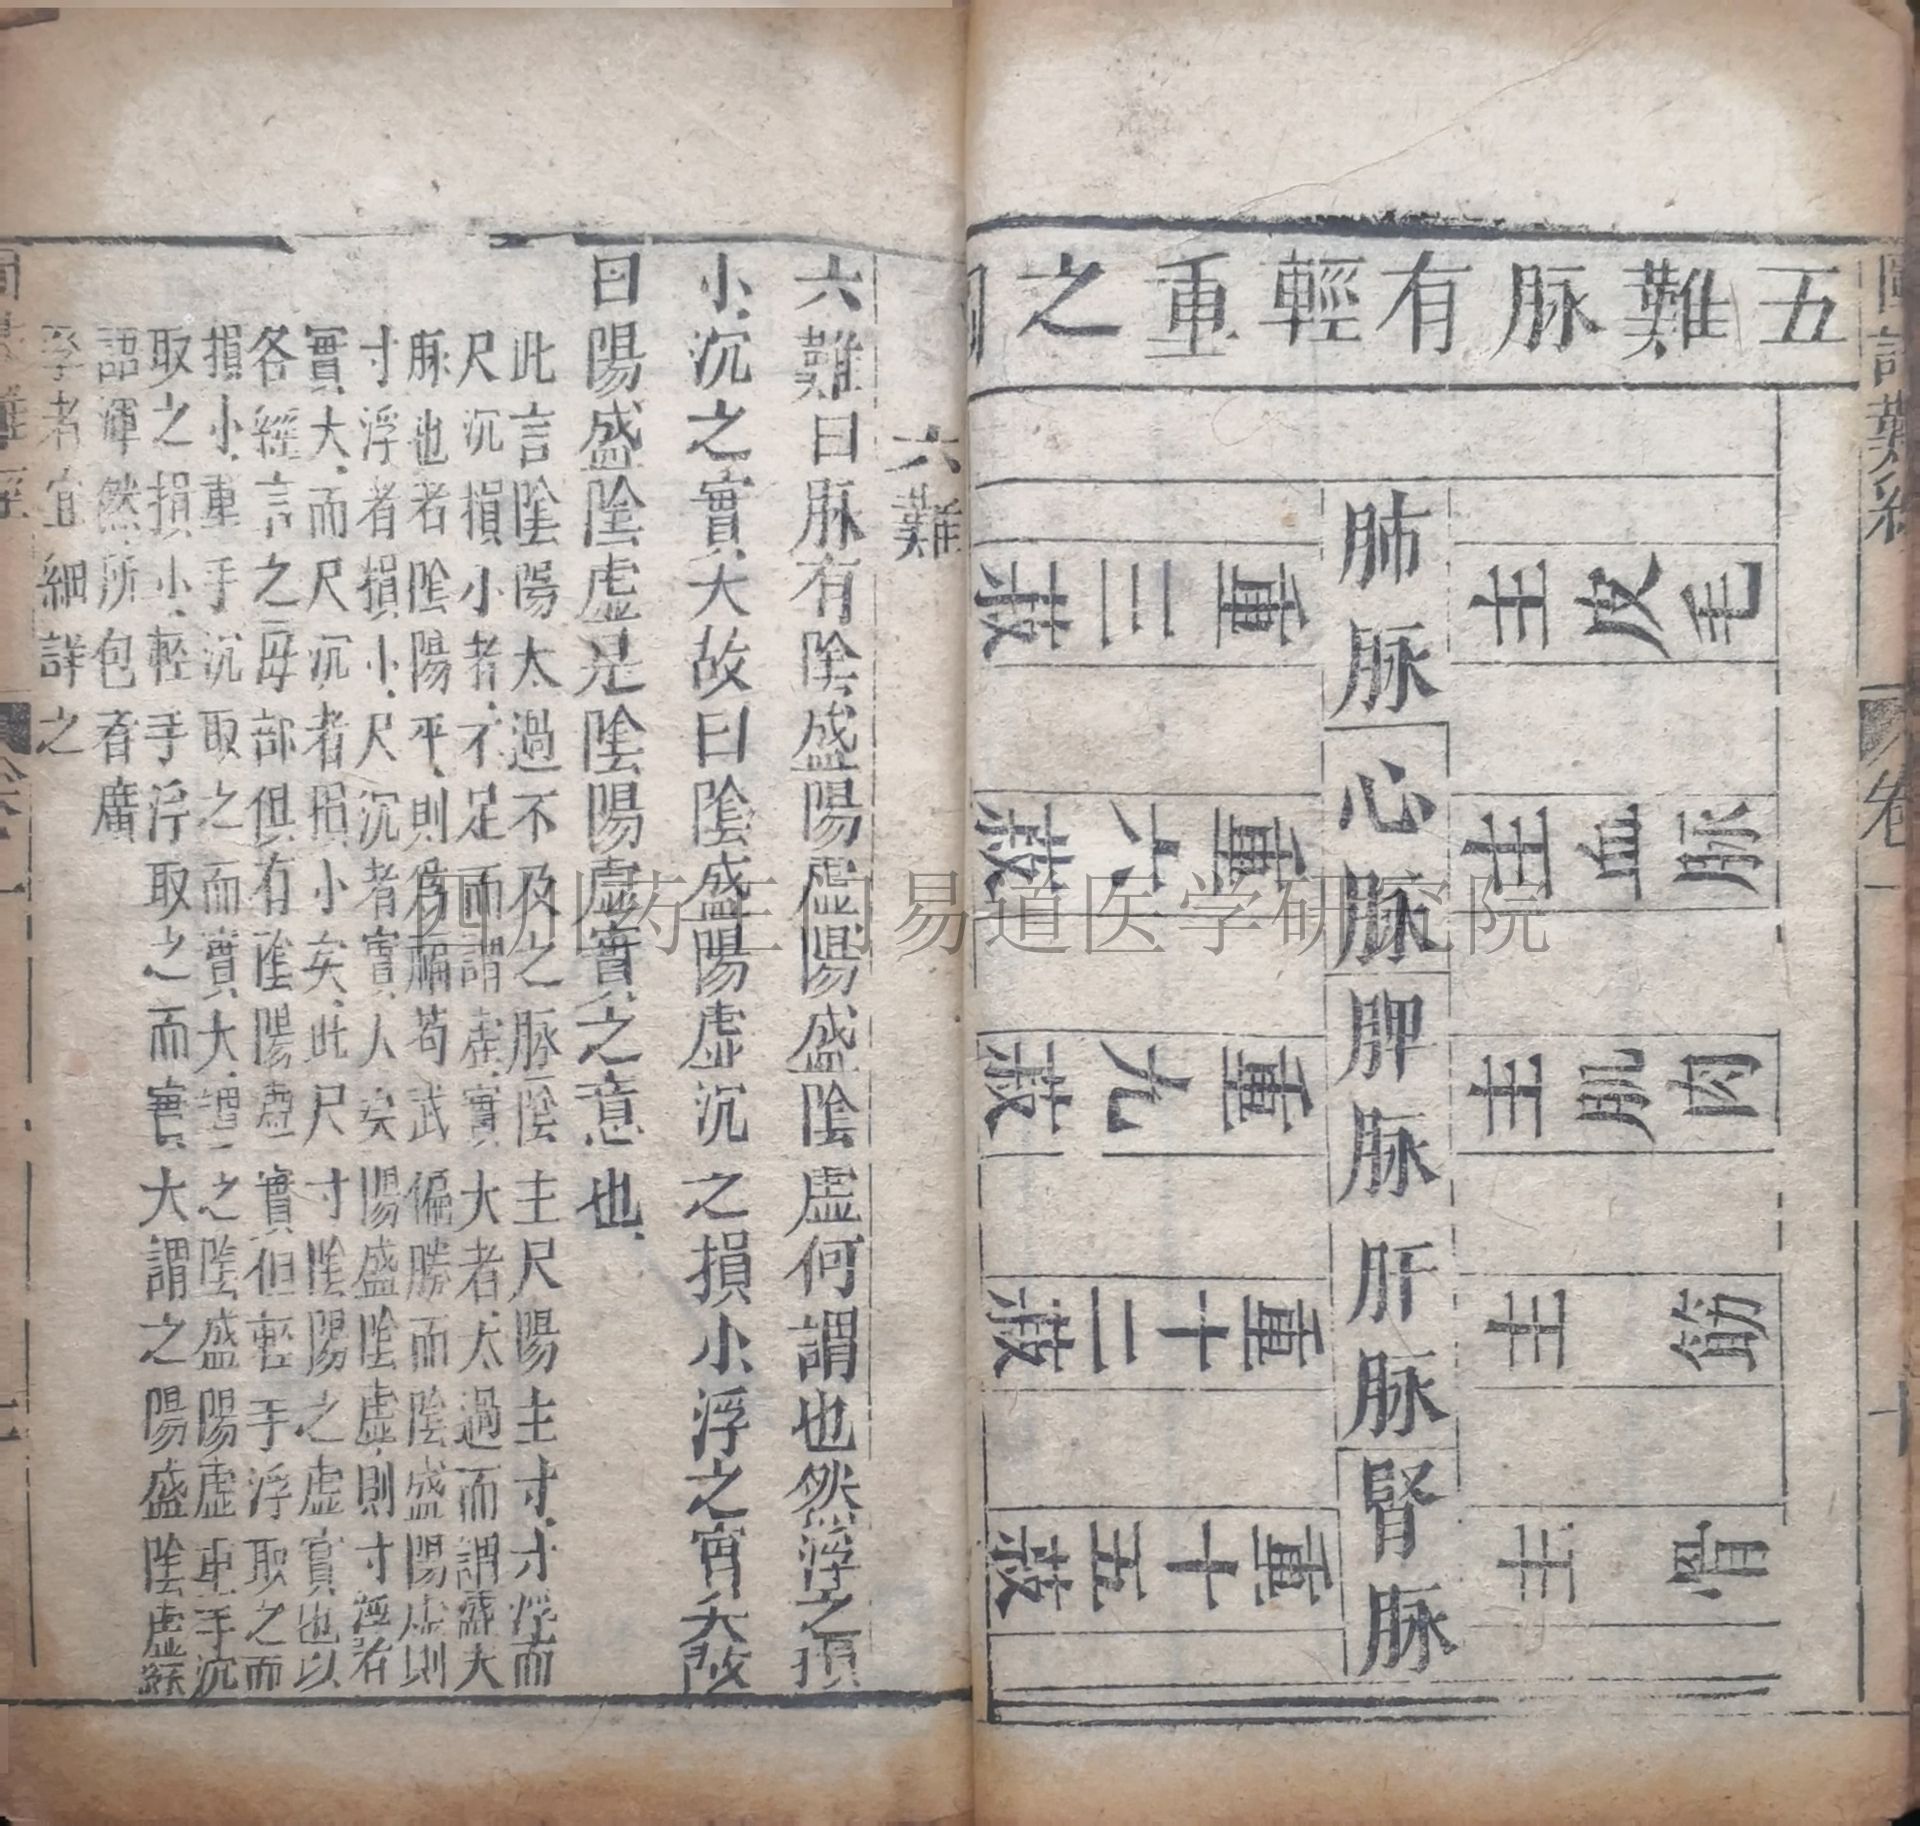 五難脉有輕重之圖
肺脉 主皮毛 重三菽
心脉 主血脉 重六菽
脾脉 主肌肉 重九菽
肝脉 主筋 重十二菽
腎脉 主骨 重十五菽
卷一
十
六難
六難曰脉有陰盛陽虛陽盛陰虛何謂也然浮之損
小沉之實大故曰陰盛陽虛沉之損小浮之實大故
曰陽盛陰虛是陰陽虛實之意也
此言陰陽太過不及之脉陰主尺陽主寸寸浮而
尺沉損小者不足而謂虛實大者太過而謂盛夫
脉也者陰陽平則爲福苟或偏勝而陰盛陽虛則
寸浮者損小尺沉者實人矣陽盛陰虛則寸浮者
實大而尺沉者損小矣此尺寸陰陽之虛實也以
各經言之毋部俱有陰陽虛實但輕手浮取之而
損小重手沉取之而實大謂之陰盛陽虛重手沉
取之損小輕手浮取之而實大謂之陽盛陰虛
語渾然所包者廣
學者宜細詳之
四川药王门易道医学研究院